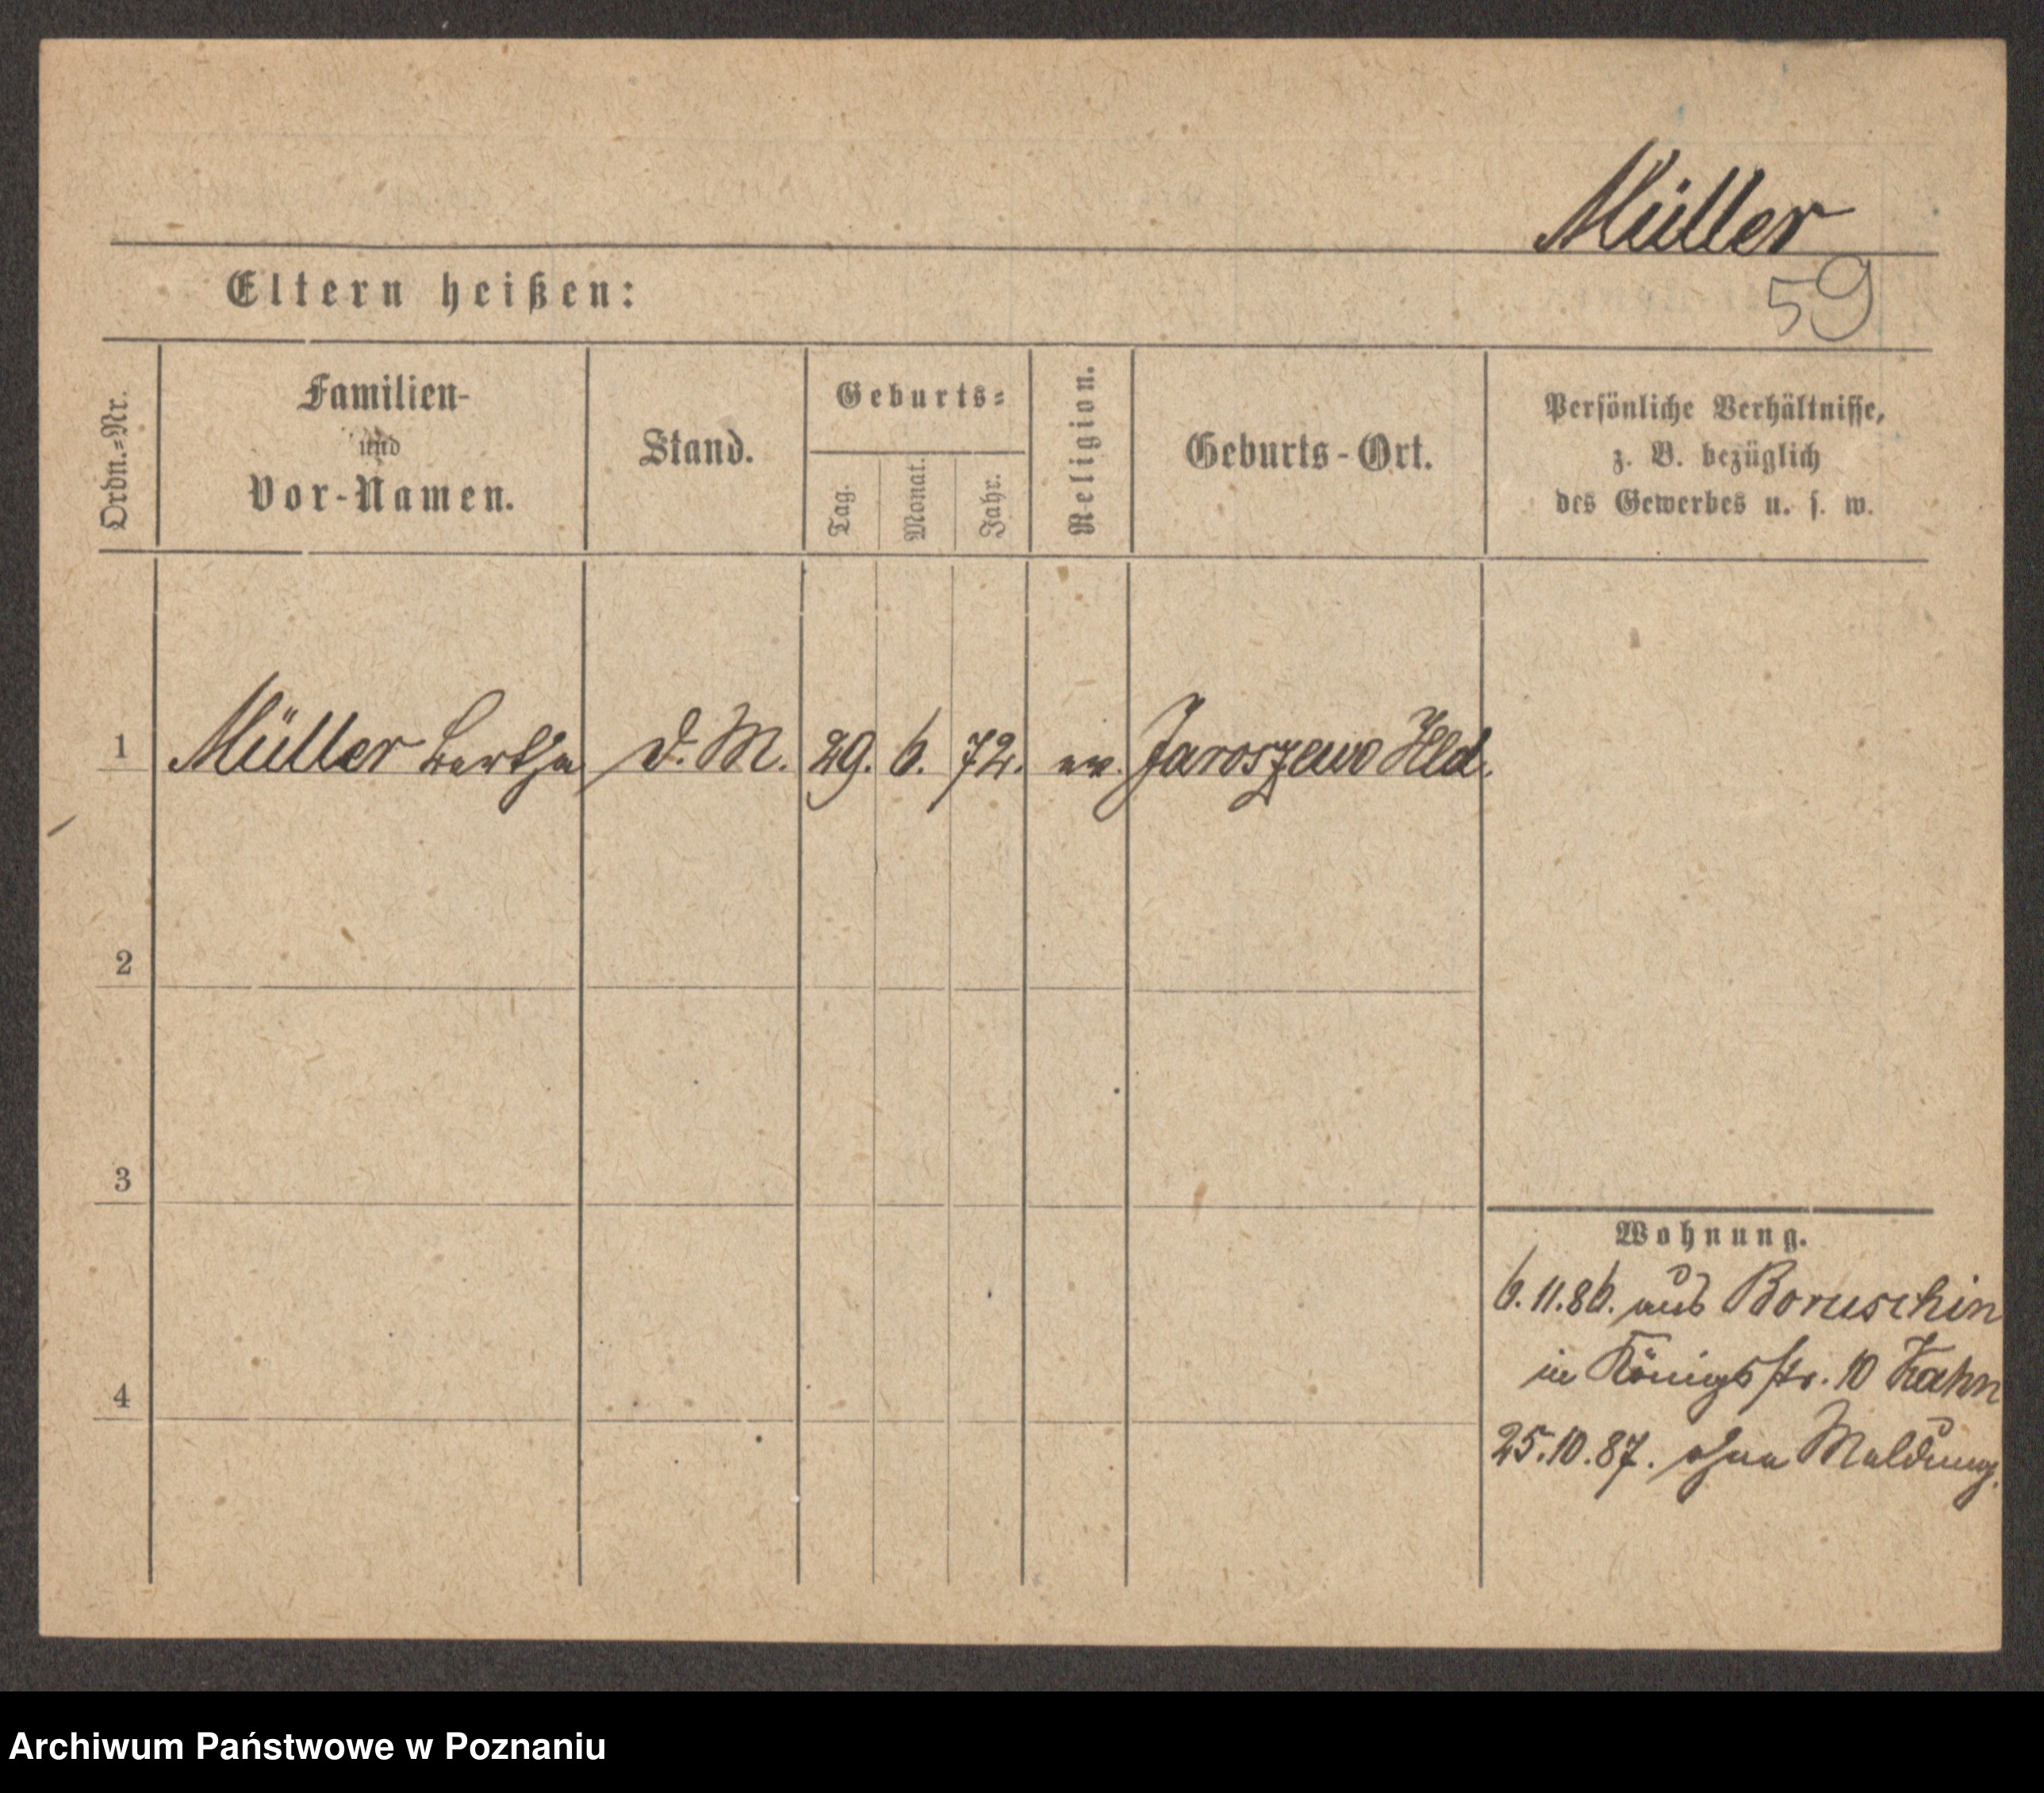 Müller
59
Eltern heißen:
Ordn.=Nr.
Familien-
und
Vor-Namen.
Stand.
Geburts=
Tag.
Monat.
Jahr.
Religion.
Geburts-Ort.
Persönliche Verhältnisse,
z. B. bezüglich
des Gewerbes u. s. w.
1 Müller Bertha d. M. 29. 6. 72. ev. Jaroszewo Hld.
2
3
4
Wohnung.
6.11.86. aus Boruschin
in Königsstr. 10 Kahn
25.10.87. ohne Meldung.
Archiwum Państwowe w Poznaniu